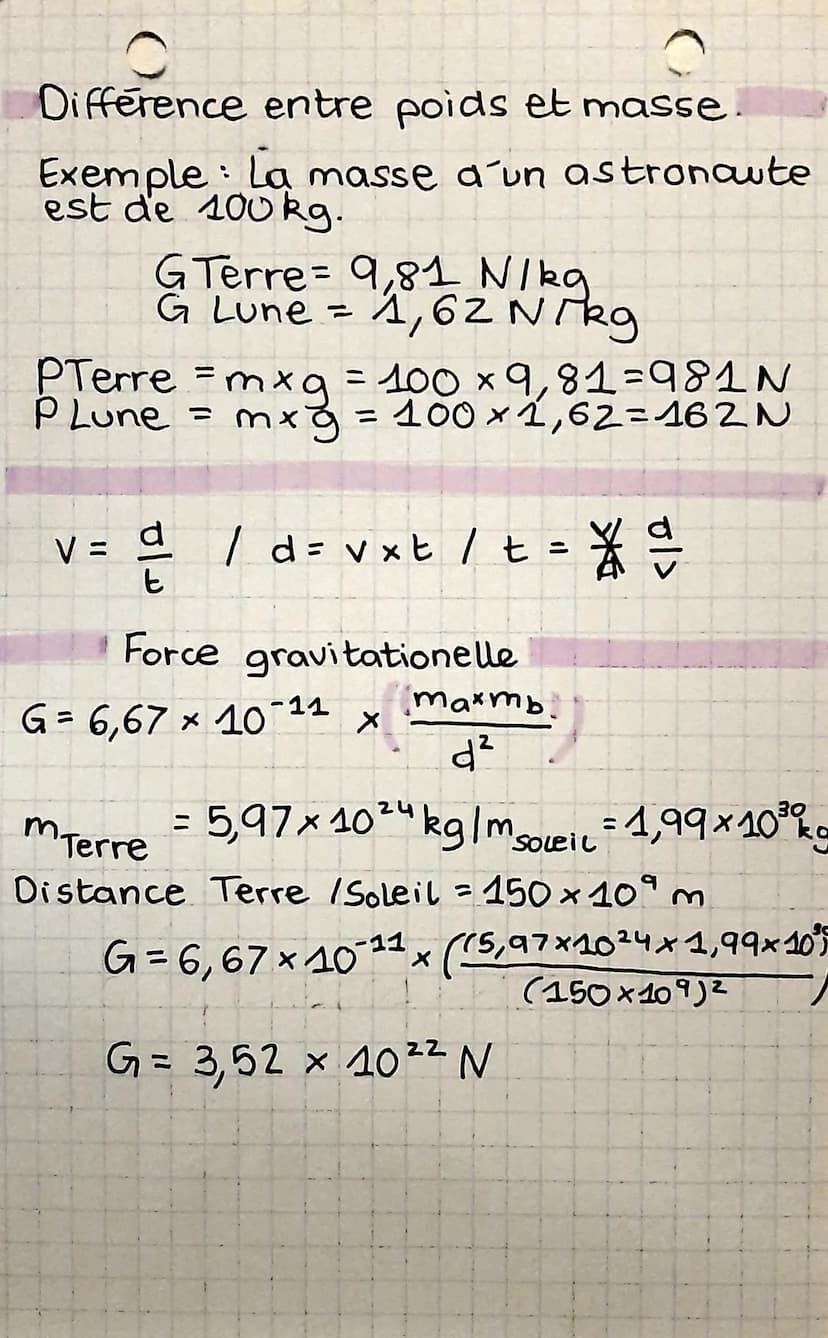 Différence entre poids et masse.
Exemple : La masse d'un astronaute
est de 100kg.
G Terre = 9,81 N/kg
G Lune = 1,62 N/kg
PTerre = m x g = 100 x 9,81 = 981 N
P Lune = m x g = 100 x 1,62 = 162 N
v = d/t / d = v x t / t = d/v
Force gravitationelle
G = 6,67 x 10⁻¹¹ x (ma x mb / d²)
mTerre = 5,97 x 10²⁴ kg / mSoleil = 1,99 x 10³⁰ kg
Distance Terre / Soleil = 150 x 10⁹ m
G = 6,67 x 10⁻¹¹ x ((5,97 x 10²⁴ x 1,99 x 10³⁰) / (150 x 10⁹)²)
G = 3,52 x 10²² N